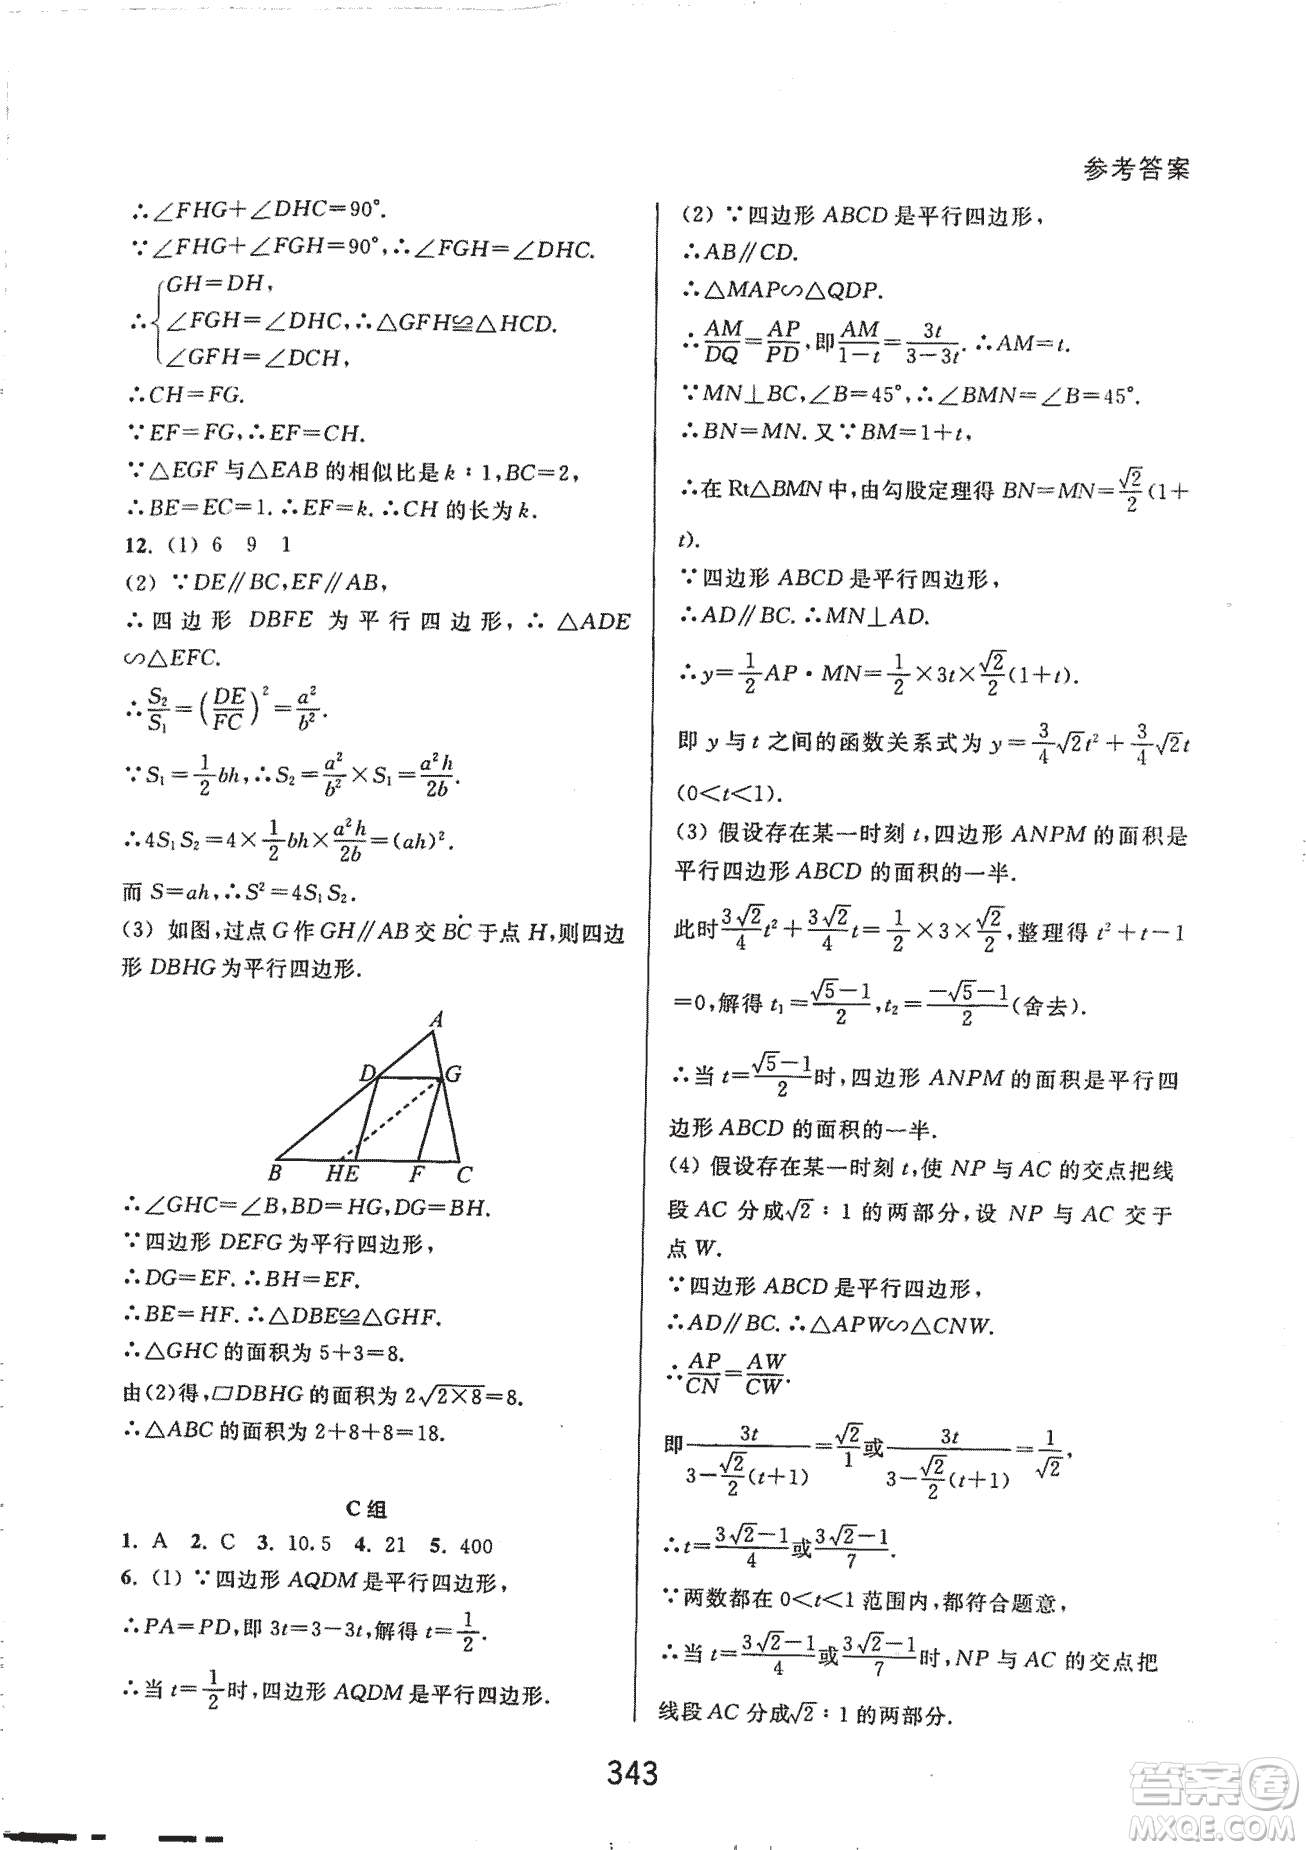 参考答案
∴∠FHG+∠DHC=90°.
∵∠FHG+∠FGH=90°,∴∠FGH=∠DHC.
∴{GH=DH,
∠FGH=∠DHC,∴△GFH≌△HCD.
∠GFH=∠DCH,
∴CH=FG.
∵EF=FG,∴EF=CH.
∵△EGF与△EAB的相似比是k∶1,BC=2,
∴BE=EC=1.∴EF=k.∴CH的长为k.
12. (1) 6 9 1
(2) ∵DE∥BC,EF∥AB,
∴四边形 DBFE 为平行四边形,∴△ADE
∽△EFC.
∴S₂/S₁=(DE/FC)²=a²/b².
∵S₁=1/2 bh,∴S₂=a²/b²×S₁=a²h/2b.
∴4S₁S₂=4×1/2 bh×a²h/2b=(ah)².
而 S=ah,∴S²=4S₁S₂.
(3) 如图,过点G作GH∥AB交BC于点H,则四边
形DBHG为平行四边形.
A
D G
B H E F C
∴∠GHC=∠B,BD=HG,DG=BH.
∵四边形DEFG为平行四边形,
∴DG=EF.∴BH=EF.
∴BE=HF.∴△DBE≌△GHF.
∴△GHC的面积为5+3=8.
由(2)得,▱DBHG的面积为2√(2×8)=8.
∴△ABC的面积为2+8+8=18.
C组
1. A 2. C 3. 10.5 4. 21 5. 400
6. (1) ∵四边形AQDM是平行四边形,
∴PA=PD,即3t=3-3t,解得t=1/2.
∴当t=1/2时,四边形AQDM是平行四边形.
(2) ∵四边形ABCD是平行四边形,
∴AB∥CD.
∴△MAP∽△QDP.
∴AM/DQ=AP/PD,即AM/(1-t)=3t/(3-3t).∴AM=t.
∵MN⊥BC,∠B=45°,∴∠BMN=∠B=45°.
∴BN=MN.又∵BM=1+t,
∴在Rt△BMN中,由勾股定理得BN=MN=√2/2(1+
t).
∵四边形ABCD是平行四边形,
∴AD∥BC.∴MN⊥AD.
∴y=1/2 AP·MN=1/2×3t×√2/2(1+t).
即y与t之间的函数关系式为y=3/4√2t²+3/4√2t
(0<t<1).
(3) 假设存在某一时刻t,四边形ANPM的面积是
平行四边形ABCD的面积的一半.
此时3√2/4 t²+3√2/4 t=1/2×3×√2/2,整理得t²+t-1
=0,解得t₁=(√5-1)/2,t₂=(-√5-1)/2(舍去).
∴当t=(√5-1)/2时,四边形ANPM的面积是平行四
边形ABCD的面积的一半.
(4) 假设存在某一时刻t,使NP与AC的交点把线
段AC分成√2∶1的两部分,设NP与AC交于
点W.
∵四边形ABCD是平行四边形,
∴AD∥BC.∴△APW∽△CNW.
∴AP/CN=AW/CW.
即3t/(3-√2/2(t+1))=√2/1或3t/(3-√2/2(t+1))=1/√2,
∴t=(3√2-1)/4或(3√2-1)/7.
∵两数都在0<t<1范围内,都符合题意,
∴当t=(3√2-1)/4或(3√2-1)/7时,NP与AC的交点把
线段AC分成√2∶1的两部分.
343
答案卷
MXQE.COM